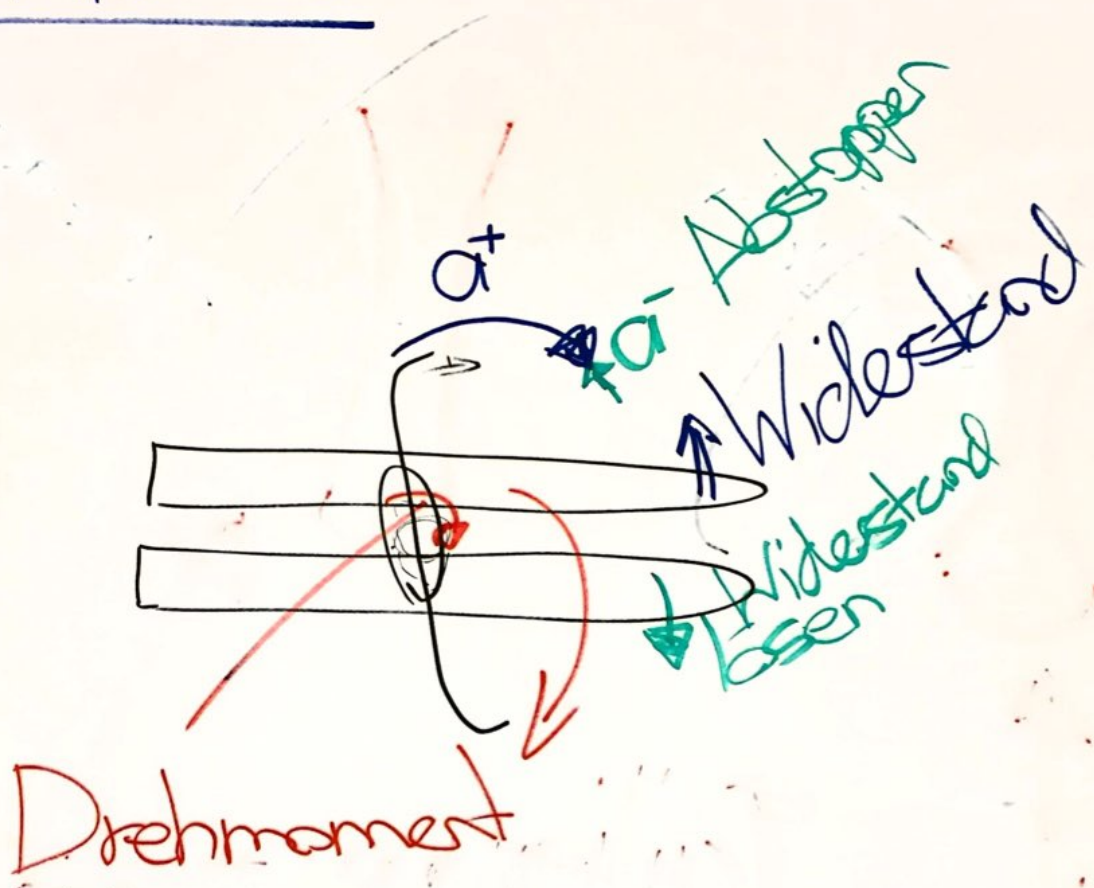 a⁺
a⁻ Abstoppen
Widerstand
Widerstand
lösen
Drehmoment